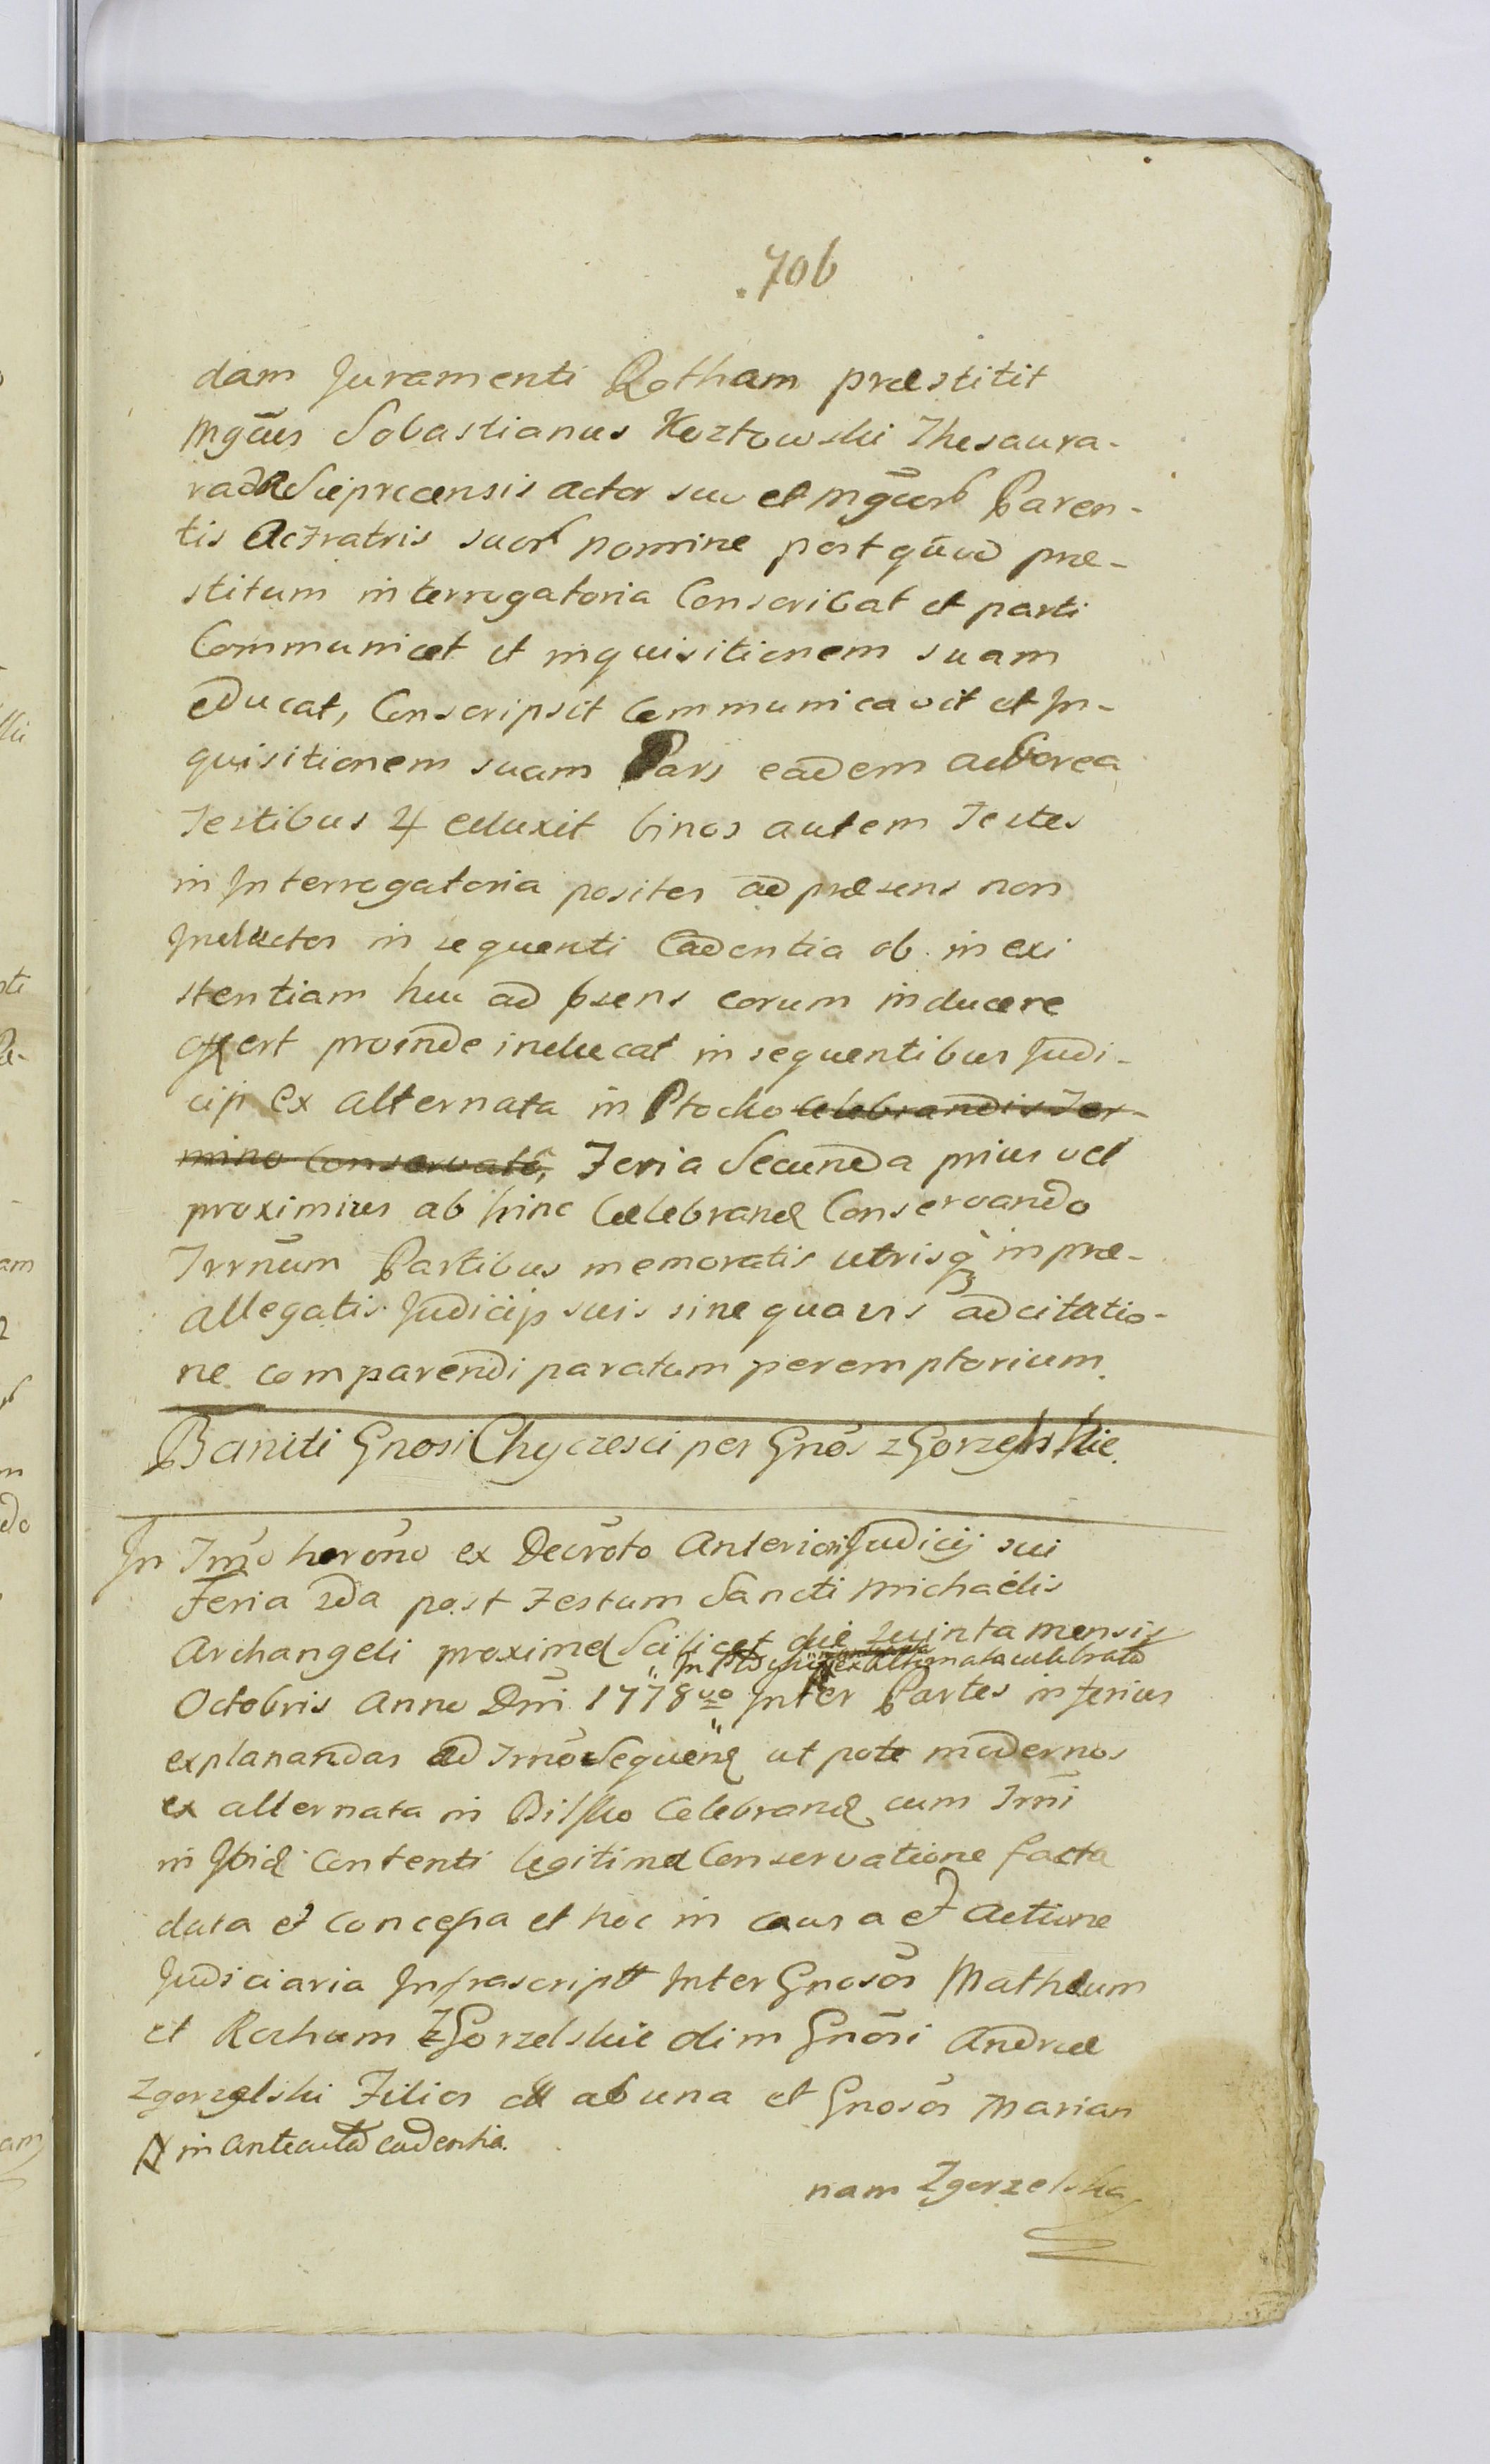 706
dam Juramenti Rotham præstitit
Mgcus Sobastianus Kozłowski Thesaura-
Sieprcensis actor suo et Mgcor Paren-
tis ac Fratris suor nomine post quod præ-
stitum interrogatoria Conscribat et parti
Communicet et inquisitionem suam
educat, Conscripsit Communicavit et In-
quisitionem suam Pars eadem
Testibus 4 eduxit binos autem Testes
in Interrogatoria positos ad præsens non
Inductos in sequenti Cadentia ob inexi
stentiam huc ad psens eorum inducere
offert proinde inducat in sequentibus Judi-
cijs ex alternata in Płocko celebrandis Ter-
mino conservato, Feria Secunda prius vel
proximius ab hinc Celebrand Conservando
Trrnum Partibus memoratis utrisq in præ-
allegatis Judicijs suis sine quavis adcitatio-
ne comparendi paratum peremptorium.
Baniti Gnosi Chyczesci per Gnos zGorzelskie.
In Trno horono ex Decreto Anteriori Judicij sui
Feria 2da post Festum Sancti Michaelis
Archangeli proxima Scilicet die Quinta mensis
ex alternata celebrato
Octobris Anno Dni 1778vo Inter Partes inferius
explanandas ad Trno Sequend ut pote modernos
ex alternata in Bilsko Celebrand cum Trni
in Ibid contenti legitima Conservatione facta
data et concessa et hoc in causa et Actione
Judiciaria Infrascript Inter Gnosos Mathæum
et Rochum ZGorzelskie olim Gnosi Andreæ
Zgorzelski Filios ab una et Gnosos Marian
in anteacta cadentia.
nam Zgorzelska